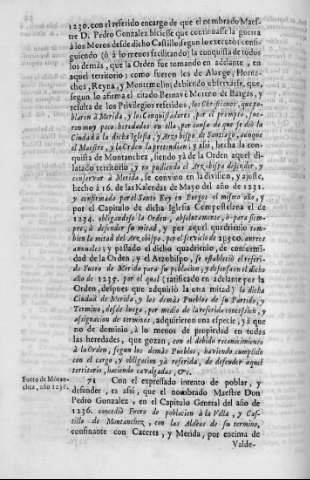 1230. con el referido encargo de que el nombrado Maes-
tre D. Pedro Gonzalez hiciesse que continuasse la guerra
à los Moros desde dicho Castillo segun los extractos consi-
guiendo (ò à lo menos facilitando) la conquista de todos
los demàs, que la Orden fue tomando en adelante, en
aquel territorio; como fueron los de Alange, Horna-
chos, Reyna, y Montemolin; debiendo observarse, que,
segun lo afirma el citado Bernabè Moreno de Bargas, y
resulta de los Privilegios referidos, los Christianos, que po-
blaron à Merida, y los Conquistadores, por el prompto, fue-
ron muy poco heredados en ella, por causa de que fue dada la
Ciudad à la dicha Iglesia, y Arzobispo de Santiago, aunque
el Maestre, y la Orden la pretendian; y assi, hecha la con-
quista de Montanchez, siendo yà de la Orden aquel di-
latado territorio, y no pudiendo el Arzobispo defender, y
conservar à Merida, se convino en la division, y ajuste,
hecho à 16. de las Kalendas de Mayo del año de 1231.
y confirmado por el Santo Rey en Burgos el mismo año, y
por el Capitulo de dicha Iglesia Compostelana el de
1234. obligandose la Orden, absolutamente, ò para siem-
pre, à defender su mitad, y por aquel quadrienio tam-
bien la mitad del Arzobispo, por el servicio de 29500.
annuales; y passado el dicho quadrienio, de conformi-
dad de la Orden, y el Arzobispo, se estableciò el referi-
do Fuero de Merida para su poblacion, y defensa en el dicho
año de 1235. por el qual (ratificado en adelante por la
Orden, despues que adquiriò la otra mitad) la dicha
Ciudad de Merida, y los demàs Pueblos de su Partido, y
Termino, desde luego, por medio de la referida concession, y
assignacion de terminos, adquirieron una especie, yà que
no de dominio, à lo menos de propiedad en todas
las heredades, que gozan, con el debido reconocimiento
à la Orden, segun los demàs Pueblos, haviendo cumplido
con el cargo, y obligacion yà referida, de defender aquel
territorio, haciendo cavalgadas, &c.
Fuero de Montan-
chez, año 1236.
71 Con el expressado intento de poblar, y
defender, es assi, que el nombrado Maestre Don
Pedro Gonzalez, en el Capitulo General del año de
1236. concediò Fuero de poblacion à la Villa, y Cas-
tillo de Montanchez, con las Aldèas de su termino,
confinante con Caceres, y Merida, por encima de
Valde-